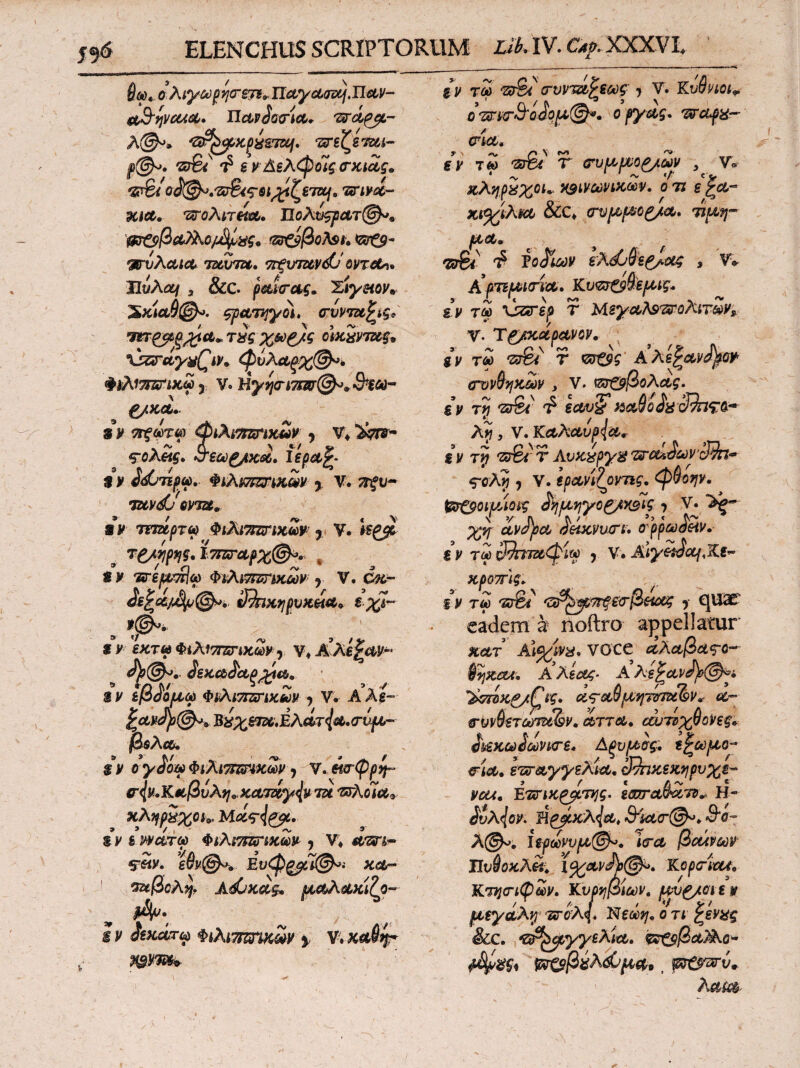 596 ELENCHUS SCRIPTORUM Lib. IV. Cap. XXXVI.
θῳ. ὀλιγωρήσετε. Παγασαί. Παν-
αθήναια. Πανδοσία. παράβα-
λος. παρακρούεται. πεζέται-
ρος. περὶ τῆς ἐν Δελφοῖς σκιᾶς.
περὶ ὁδός. περιστοιχίζεται. πινά-
κια. πολιτεία. Πολύστρατος.
προβαλλομένους. προβολαί. προ-
πύλαια ταῦτα. πρυτανεύοντα.
Πύλαι, &c. ῥαίσας. Σίγειον.
Σκίαθος. στρατηγοί. σύνταξις.
τετραρχία. τοὺς χωρὶς οἰκοῦντας.
ὑπάγουσιν. φύλαρχος.
Φιλιππικῷ, V. Ἡγήσιππος. θεω-
ρικά.
ἐν πρώτῳ Φιλιππικῶν, V. ἀπο-
στολεῖς. θεωρικά. ἱέραξ.
ἐν δευτέρῳ Φιλιππικῶν, V. πρυ-
τανεύοντα.
ἐν τετάρτῳ Φιλιππικῶν, V. ἱερὰ
τριήρης. ἵππαρχος.
ἐν πέμπτῳ Φιλιππικῶν, V. ἐκ-
δεξάμενος. ἐπικηρυκεία. ἐχῖ-
νος.
ἐν ἕκτῳ Φιλιππικῶν, V. Ἀλέξαν-
δρος. δεκαδαρχία.
ἐν ἑβδόμῳ Φιλιππικῶν, V. Ἀλέ-
ξανδρος. Βούχετα. Ἐλάτεια. σύμ-
βολα.
ἐν ὀγδόῳ Φιλιππικῶν, V. εἰσφρή-
σειν. Καβύλη. κατάγειν τὰ πλοῖα.
κληροῦχοι. Μάστειρα.
ἐν ἐννάτῳ Φιλιππικῶν, V. ἀπει-
πεῖν. ἔθνος. Εὐφραῖος. κα-
ταβολή. Λευκάς. μαλακιζό-
μεν.
ἐν δεκάτῳ Φιλιππικῶν, V. καθή-
κοντα.
ἐν τῷ περὶ συντάξεως, V. Κύθνιοι.
ὁ πισθόδομος. ὀργάς. παρου-
σία.
ἐν τῷ περὶ τῶν συμμοριῶν, V.
κληροῦχοι. κοινωνικῶν. ὅτι ἑξα-
κισχίλια &c. συμμορία. τιμή-
μα.
περὶ τῆς Ῥοδίων ἐλευθερίας, V.
Ἀρτεμισία. Κυπρόθεμις.
ἐν τῷ ὑπὲρ τῶν Μεγαλοπολιτῶν,
V. Τρικάρανον.
ἐν τῷ περὶ τῶν πρὸς Ἀλέξανδρον
συνθηκῶν, V. προβολάς.
ἐν τῇ περὶ τῆς ἑαυτοῦ καθόδου ἐπιστο-
λῇ, V. Καλαυρεία.
ἐν τῇ περὶ τῶν Λυκούργου παίδων ἐπι-
στολῇ, V. ἐρανίζοντες. φθόην.
προοιμίοις δημηγορικοῖς, V. ἀρ-
χὴ ἄνδρα δείκνυσι. ὀρρωδεῖν.
ἐν τῷ ἐπιταφίῳ, V. Αἰγεῖδαι. Κε-
κροπίς.
ἐν τῷ περὶ παραπρεσβείας, quae
eadem à nostro appellatur
κατ' Αἰσχίνου. voce ἀλαβαστο-
θῆκαι. Ἀλέας. Ἀλέξανδρος.
ὑπόκρισις. ἀσταθμητότατον. ἀ-
συνθετώτατον. ἄττα. αὐτόχθονες.
διεκωδώνισε. Δρυμός. ἐξωμο-
σία. ἐπαγγελία. ἐπικεκηρυχέ-
ναι. Ἐπικράτης. ἐσπαθᾶτο. Ἡ-
δύλειον. Ἡράκλεια. θίασος. Θό-
λος. Ἱερώνυμος. ἴσα βαίνων
Πυθοκλεῖ. Ἴσχανδρος. Κορσιαί.
Κτησιφῶν. Κυρηβίων. μύριοι ἐν
μεγάλῃ πόλει. Νεώνη. ὅτι ξένους
&c. παραγγελία. προβαλλο-
μένους. προβούλευμα. προπύ-
λαια